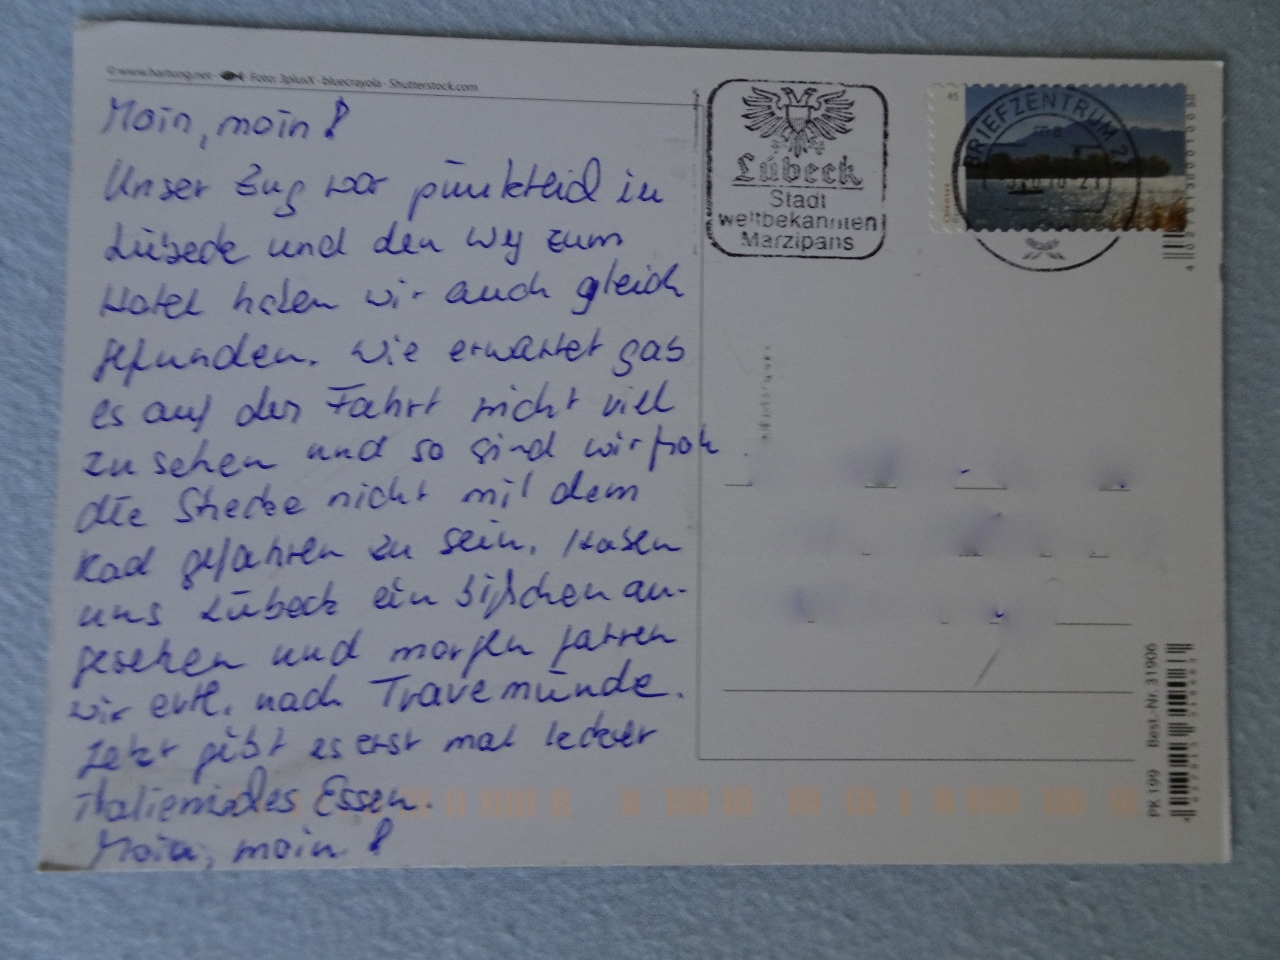 © www.hartung.net · Foto: 3plusX - bluecrayola - Shutterstock.com
Moin, moin!
Unser Zug war pünktlich in
Lübeck und den Weg zum
Hotel haben wir auch gleich
gefunden. Wie erwartet gab
es auf der Fahrt nicht viel
zu sehen und so sind wir froh
die Strecke nicht mit dem
Rad gefahren zu sein. Haben
uns Lübeck ein bißchen an-
gesehen und morgen fahren
wir evtl. nach Travemünde.
Jetzt gibt es erst mal lecker
Italienisches Essen.
Moin, moin!
Lübeck
Stadt
weltbekannten
Marzipans
45
BRIEFZENTRUM
PK 199 Best.-Nr. 31906